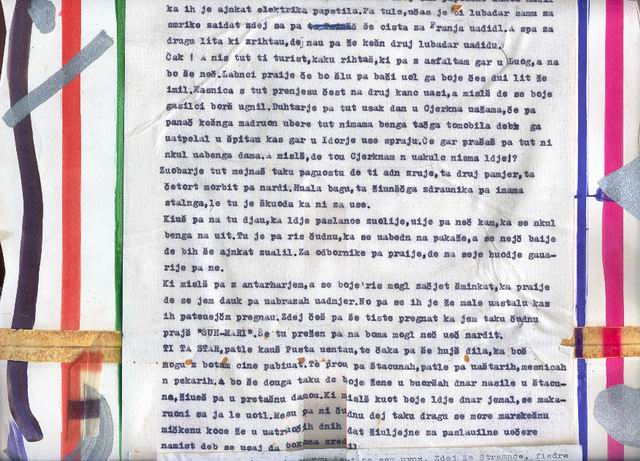 ka ih je ajnkat elektrika papstila. Pa tule, učae je bi lubadar samu za
smrike zaidat zdej sa pa še cista za Franja uadidl. A spa za
drugu lita ki zrihtau, dej nau pa že kešn druj lubadar uadidu.
Čak ! A nis tut ti turist, kaku rihtaš, ki pa z asfaltam gar u Luog, a na
bo še neč. Labnci praije če bo šlu pa baži uol ga boje čes dui lit že
imil. Kasnica s tut prenjesu čest na druj kanc uasi, a mislš de se boje
gasilci borš ugnil. Duhtarje pa tut usak dan u Cjerkna uažama, če pa
panač kešnga madruon ubere tut nimama benga tačga tomobila debb ga
uatpelal u špitau kas gar u Idorje use spraju. Če gar prašaš pa tut ni
nkul uabenga dama. A mislš, de tou Cjerknam n uakulc nisma ldje!?
Zuobarje tut mejnaš taku paguostu de ti adn zruje, ta druj pamjer, ta
četort morbit pa nardi. Huala bagu, ta žiunščga zdraunika pa imama
stalnga, le tu je škuoda ka ni za use.
Kiuš pa na tu djau, ka ldje paslance zuolije, uije pa neč kam, ka se nkul
benga na uit. Tu je pa ris čudnu, ka se uabedn na pakaže, a se nejč baije
de bih še ajnkat zualil. Za odbornike pa praije, de na seje huodje gaua-
rije pa ne.
Ki mislš pa z antarharjem, a se boje'ris mogl začjet šminkat, ka praije
de se jem dauk pa uabrazah uadmjer. No pa se ih je že male uastalu kas
ih pateuejšm pregnau. Zdej češ pa še tiste pregnat ka jem taku čudnu
prajš "SUH-MARI". Še tu prežen pa na boma mogl neč ueč nardit.
TI TA STAR, patle kauš Pusta uentau, te čaka pa še hujš dila, ka boš
mogu z botam cine pabiuat. Te prou pa štacunah, patle pa uaštarih, mesnicah
n pekarih. A bo še douga taku de boje žene u buoršah dnar nasile u štacu-
na, žiueš pa u pretašnu damou. Ki mislš kuot boje ldje dnar jemal, se maka-
ruoni sa ja le uotl. Mesu pa ni čudnu dej taku dragu se more marskešnu
miškenu koce že u uatruočih dnih dat žiuljejne za paslauilne uečere
namist deb se usaj da bokana zredil: